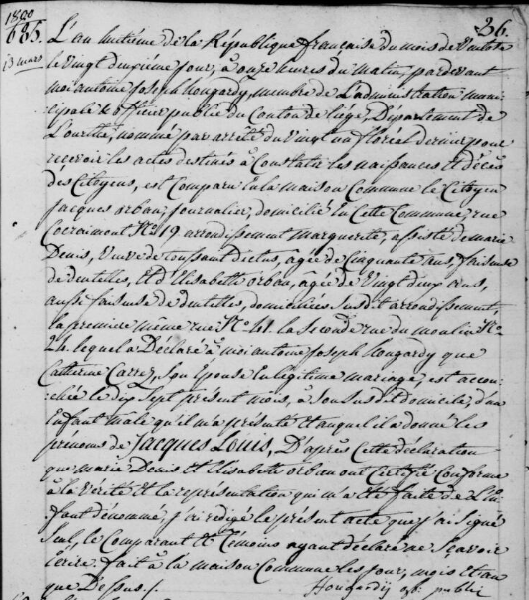 1800
686. 26.
13 mars
L'an huitième de la République française du mois de Ventôse
le vingt deuxième jour, à onze heures du matin, pardevant
moi antoine Joseph Hougardy, membre de L'administration muni-
cipale & officier public du Canton de liége, Département de
L'ourthe, nommé par arrêté du vingt un floréal dernier pour
recevoir les actes destinés à Constater les naissances et décès
des Citoyens, est Comparu à la maison Commune le Citoyen
Jacques orban, journalier, domicilié en Cette Commune, rue
Cocraimont N° 19 arrondissement marguerite, assisté de marie
Denis, Veuve de toussaint dictus, âgée de Cinquante ans, faiseuse
de dentelles, et d'Elisabeth orban, âgée de Vingt deux ans,
aussi faiseuse de dentelles, domiciliées susdit arrondissement,
la première même rue N° 41. la Seconde rue du moulin N°
24. lequel a Déclaré à moi antoine Joseph Hougardy que
Catherine Carrez, Son Epouse en légitime mariage, est accou-
chée le dix Sept présent mois, à Son Susdit Domicile, d'un
Enfant male qu'il m'a présenté et auquel il a donné les
prénoms de Jacques Louis, D'après Cette déclaration
que marie Denis et Elisabeth orban ont Certifié Conforme
à la Vérité et la représentation qui m'a été faite de L'en-
fant dénommé, j'ai redigé le présent acte que j'ai Signé
Seul, le Comparant et Témoins ayant déclaré ne Scavoir
écrire. fait à la maison Commune les jour, mois et an
que Dessus./.
Hougardy off. public